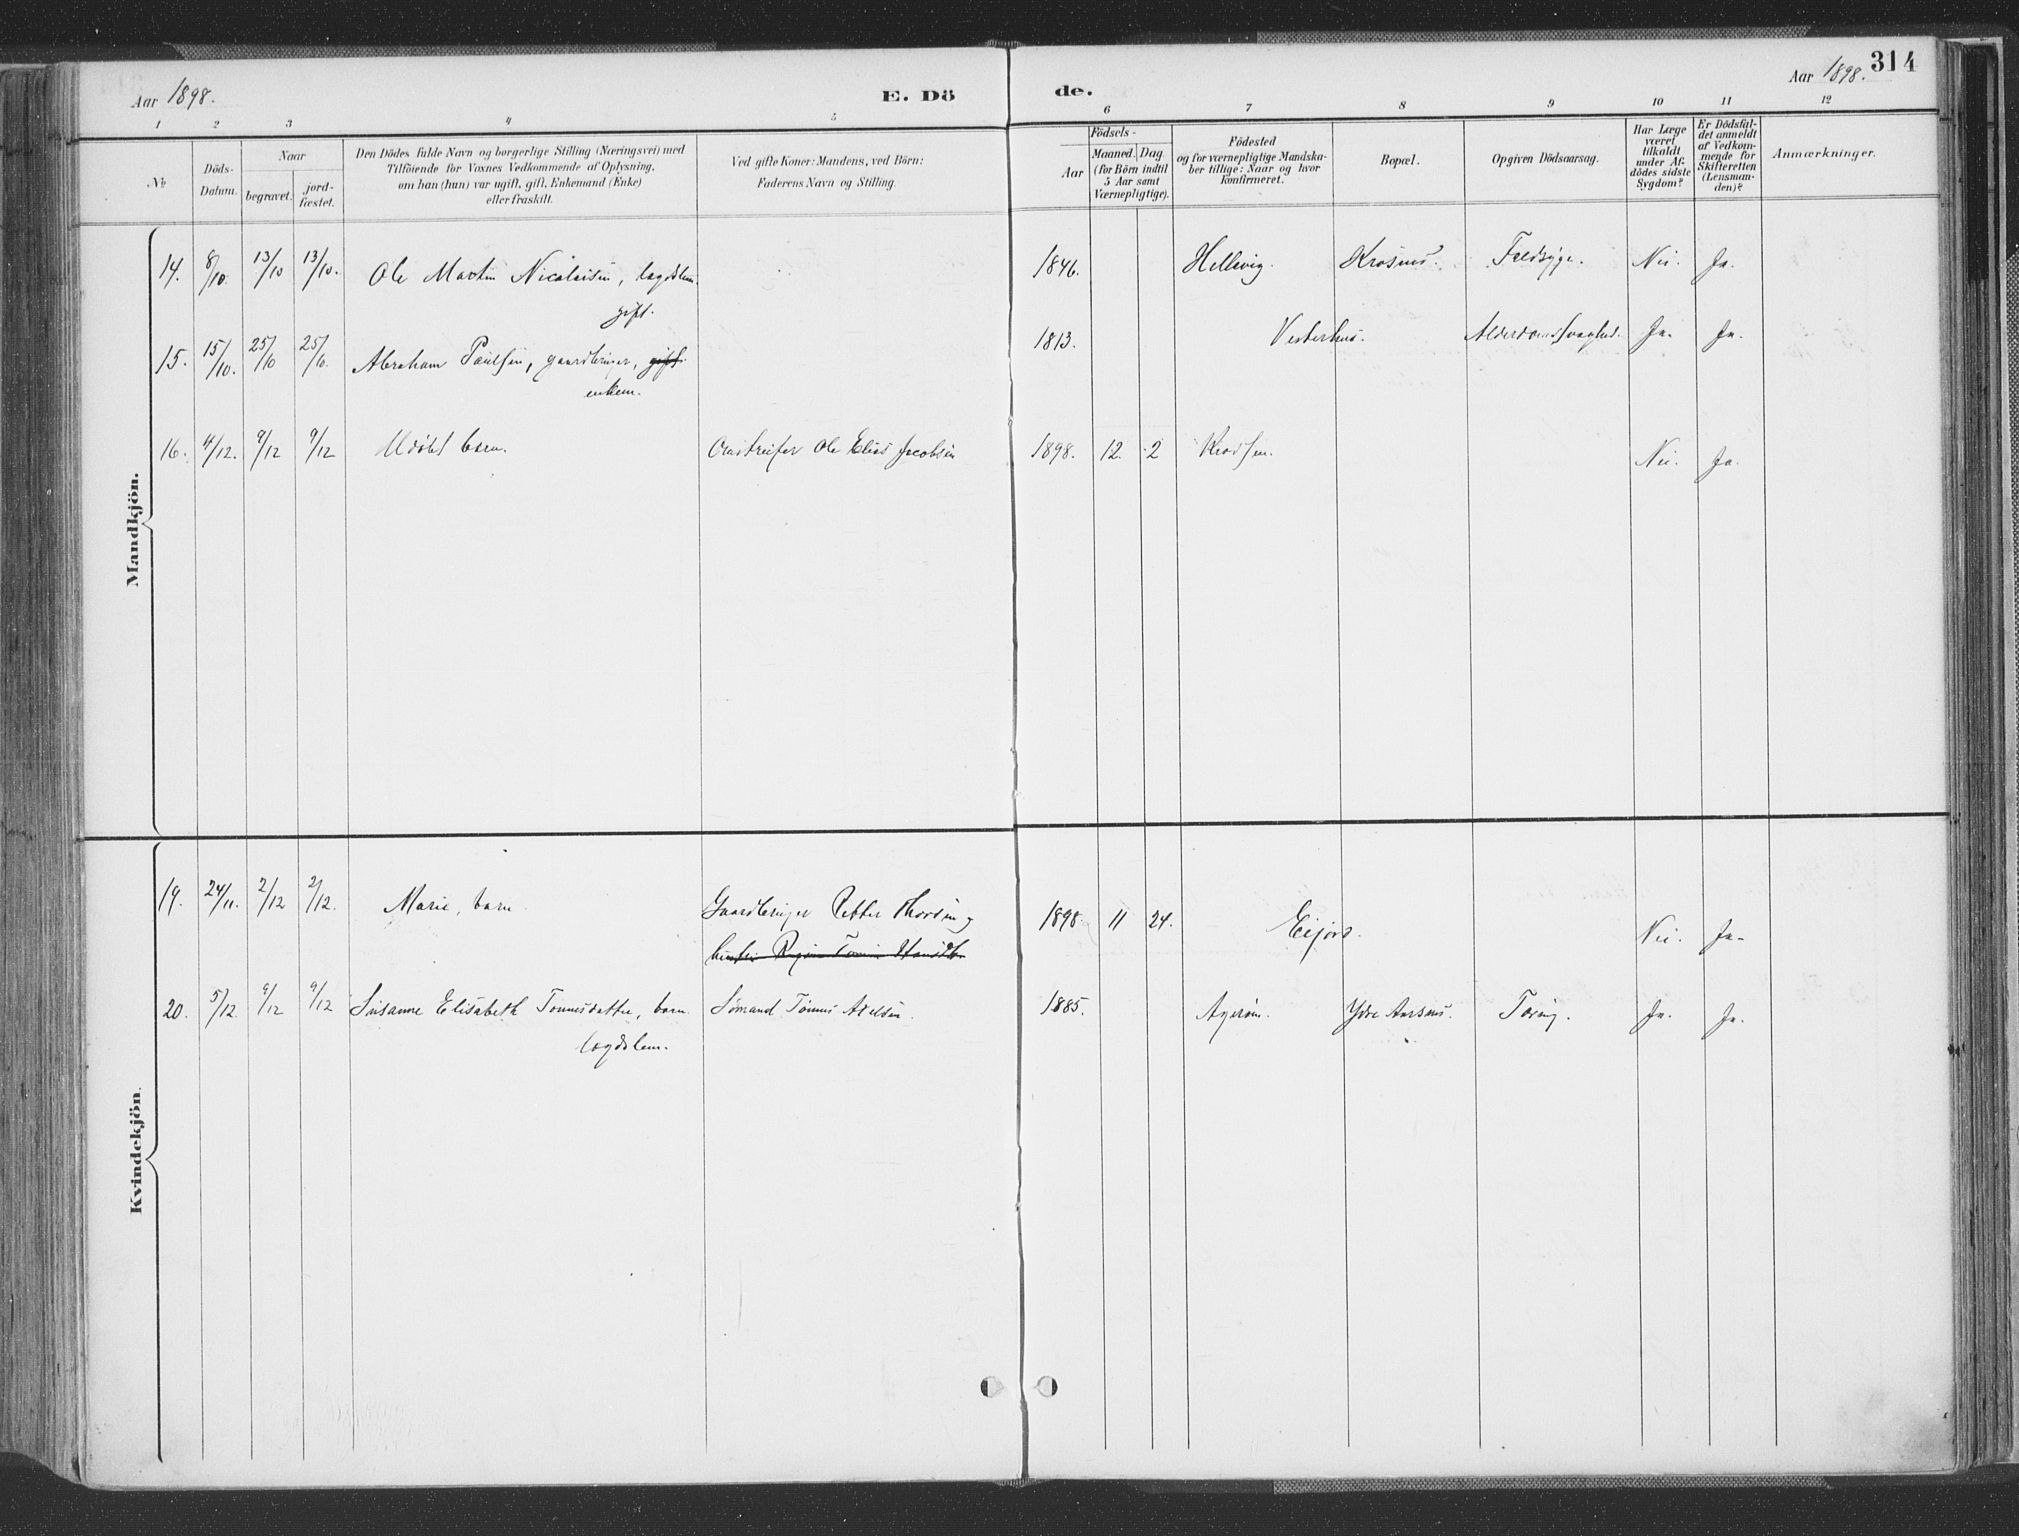 314
Aar 1898.
E. Dö
de.
Aar 1898.
1 2 3 4 5 6 7 8 9 10 11 12
No
Döds-
Datum.
Naar
begravet.
jord-
fæstet.
Den Dödes fulde Navn og borgerlige Stilling (Næringsvei) med
Tilföiende for Voxnes Vedkommende af Oplysning,
om han (hun) var ugift, gift, Enkemand (Enke)
eller fraskilt.
Ved gifte Koner: Mandens, ved Börn:
Faderens Navn og Stilling.
Födsels-
Aar
Maaned.
Dag
(for Börn indtil
5 Aar samt
Værnepligtige).
Födested
og for værnepligtige Mandska-
ber tillige: Naar og hvor
konfirmeret.
Bopæl.
Opgiven Dödsaarsag.
Har Læge
været
tilkaldt
under Af-
dödes sidste
Sygdom?
Er Dödsfal-
det anmeldt
af Vedkom-
mende for
Skifteretten
(Lensman-
den)?
Anmærkninger.
Mandkjön.
14. 8/10. 13/10 13/10. Ole Martin Nicolaisen, lægdslem. 1846. Hellevig. Krosnes. Faldsyge. Nei. Ja.
gift.
15. 15/10. 25/10 25/10. Abraham Paulsen, gaardbruger, gift 1813. Vesterhus. Alderdomssvaghed. Ja. Ja.
enkem.
16. 4/12. 9/12 9/12 Udöbt barn. Ole Elias Jacobsen 1898. 12. 2 Nei. Ja.
Kvindekjön.
19. 24/11. 2/12 2/12. Marie, barn. Gaardbruger Petter 1898 11 24. Eijord. Nei. Ja.
20. 5/12 9/12 9/12 Susanne Elisabeth Tønnesdatter, barn. Sømand Tønnes Axelsen. 1885. Agerøen. Ydre Aarsnes. Tæring. Ja. Ja.
lægdslem.